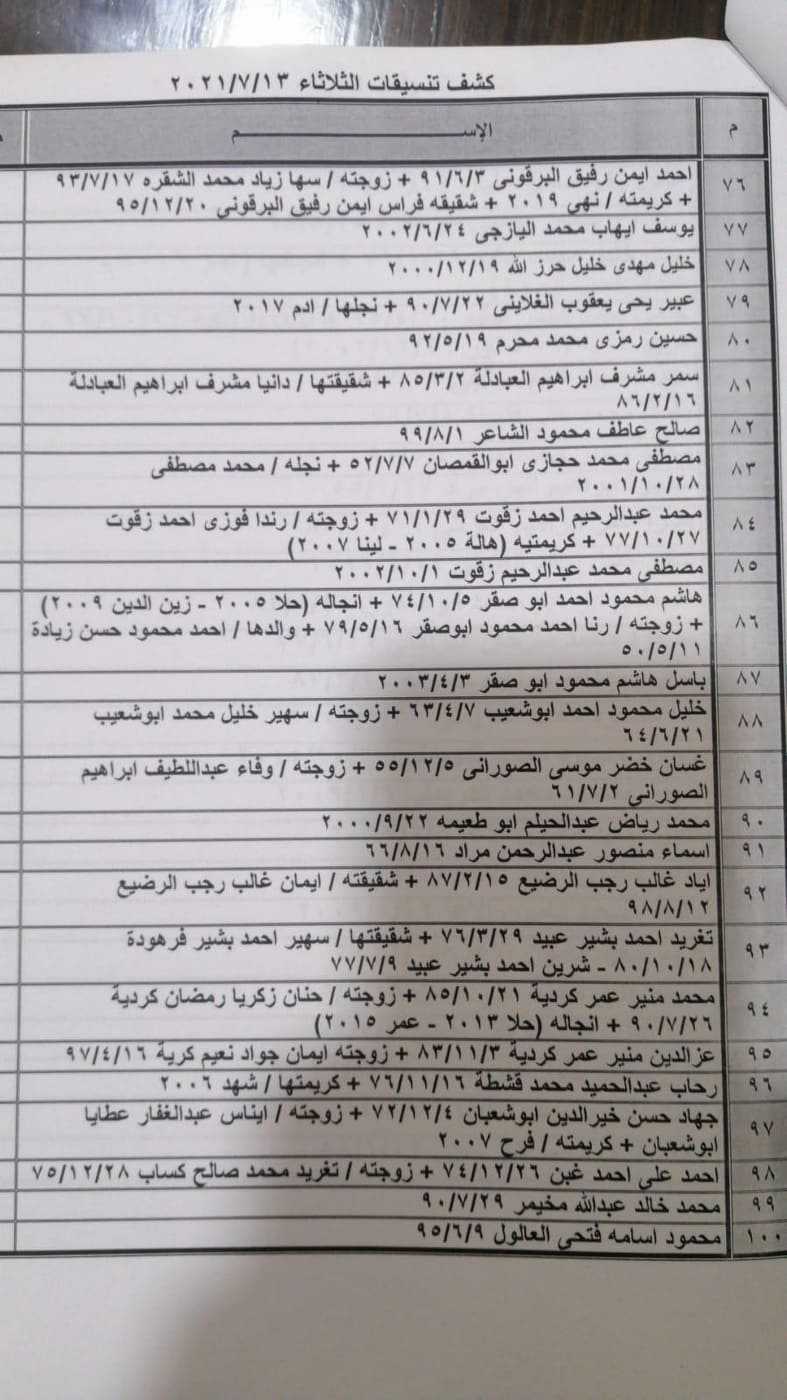 كشف تنسيقات الثلاثاء ٢٠٢١/٧/١٣
م الإســـم
٧٦ احمد ايمن رفيق البرقونى ٩١/٦/٣ + زوجته / سها زياد محمد الشقره ٩٣/٧/١٧
+ كريمته / نهى ٢٠١٩ + شقيقه فراس ايمن رفيق البرقونى ٩٥/١٢/٢٠
٧٧ يوسف ايهاب محمد اليازجى ٢٠٠٢/٦/٢٤
٧٨ خليل مهدى خليل حرز الله ٢٠٠٠/١٢/١٩
٧٩ عبير يحى يعقوب الغلاينى ٩٠/٧/٢٢ + نجلها / ادم ٢٠١٧
٨٠ حسين رمزى محمد محرم ٩٢/٥/١٩
٨١ سمر مشرف ابراهيم العبادلة ٨٥/٣/٢ + شقيقتها / دانيا مشرف ابراهيم العبادلة
٨٦/٢/١٦
٨٢ صالح عاطف محمود الشاعر ٩٩/٨/١
٨٣ مصطفى محمد حجازى ابوالقمصان ٥٢/٧/٧ + نجله / محمد مصطفى
٢٠٠١/١٠/٢٨
٨٤ محمد عبدالرحيم احمد زقوت ٧١/١/٢٩ + زوجته / رندا فوزى احمد زقوت
٧٧/١٠/٢٧ + كريمتيه (هالة ٢٠٠٥ - لينا ٢٠٠٧)
٨٥ مصطفى محمد عبدالرحيم زقوت ٢٠٠٢/١٠/١
٨٦ هاشم محمود احمد ابو صقر ٧٤/١٠/٥ + انجاله (حلا ٢٠٠٥ - زين الدين ٢٠٠٩)
+ زوجته / رنا احمد محمود ابوصقر ٧٩/٥/١٦ + والدها / احمد محمود حسن زيادة
٥٠/٥/١١
٨٧ باسل هاشم محمود ابو صقر ٢٠٠٣/٤/٣
٨٨ خليل محمود احمد ابوشعيب ٦٣/٤/٧ + زوجته / سهير خليل محمد ابوشعيب
٦٤/٦/٢١
٨٩ غسان خضر موسى الصورانى ٥٥/١٢/٥ + زوجته / وفاء عبداللطيف ابراهيم
الصورانى ٦١/٧/٢
٩٠ محمد رياض عبدالحيلم ابو طعيمه ٢٠٠٠/٩/٢٢
٩١ اسماء منصور عبدالرحمن مراد ٦٦/٨/١٦
٩٢ اياد غالب رجب الرضيع ٨٧/٢/١٥ + شقيقته / ايمان غالب رجب الرضيع
٩٨/٨/١٢
٩٣ تغريد احمد بشير عبيد ٧٦/٣/٢٩ + شقيقتها / سهير احمد بشير فرهودة
٨٠/١٠/١٨ - شرين احمد بشير عبيد ٧٧/٧/٩
٩٤ محمد منير عمر كردية ٨٥/١٠/٢١ + زوجته / حنان زكريا رمضان كردية
٩٠/٧/٢٦ + انجاله (حلا ٢٠١٣ - عمر ٢٠١٥)
٩٥ عزالدين منير عمر كردية ٨٣/١١/٣ + زوجته ايمان جواد نعيم كرية ٩٧/٤/١٦
٩٦ رحاب عبدالحميد محمد قشطة ٧٦/١١/١٦ + كريمتها / شهد ٢٠٠٦
٩٧ جهاد حسن خيرالدين ابوشعبان ٧٢/١٢/٤ + زوجته / ايناس عبدالغفار عطايا
ابوشعبان + كريمته / فرح ٢٠٠٧
٩٨ احمد على احمد غبن ٧٤/١٢/٢٦ + زوجته / تغريد محمد صالح كساب ٧٥/١٢/٢٨
٩٩ محمد خالد عبدالله مخيمر ٩٠/٧/٢٩
١٠٠ محمود اسامه فتحى العالول ٩٥/٦/٩